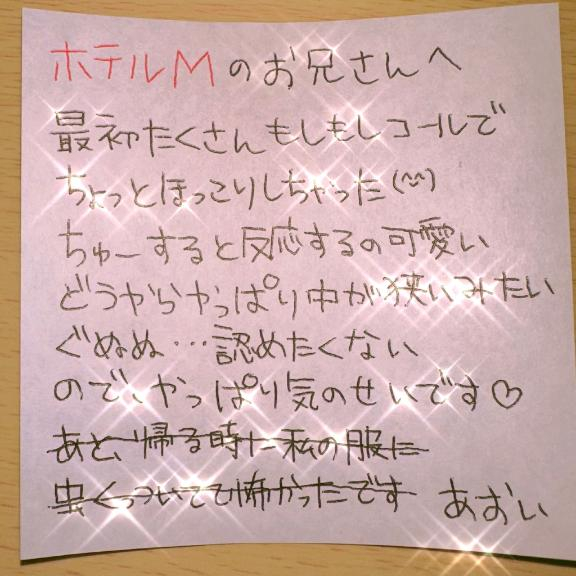 ホテルMのお兄さんへ
最初たくさんもしもしコールで
ちょっとほっこりしちゃった(^^)
ちゅーすると反応するの可愛い
どうやらやっぱり中が狭いみたい
ぐぬぬ…認めたくない
ので、やっぱり気のせいです♡
あと、帰る時に私の服に
虫くっついてて怖かったです
あおい